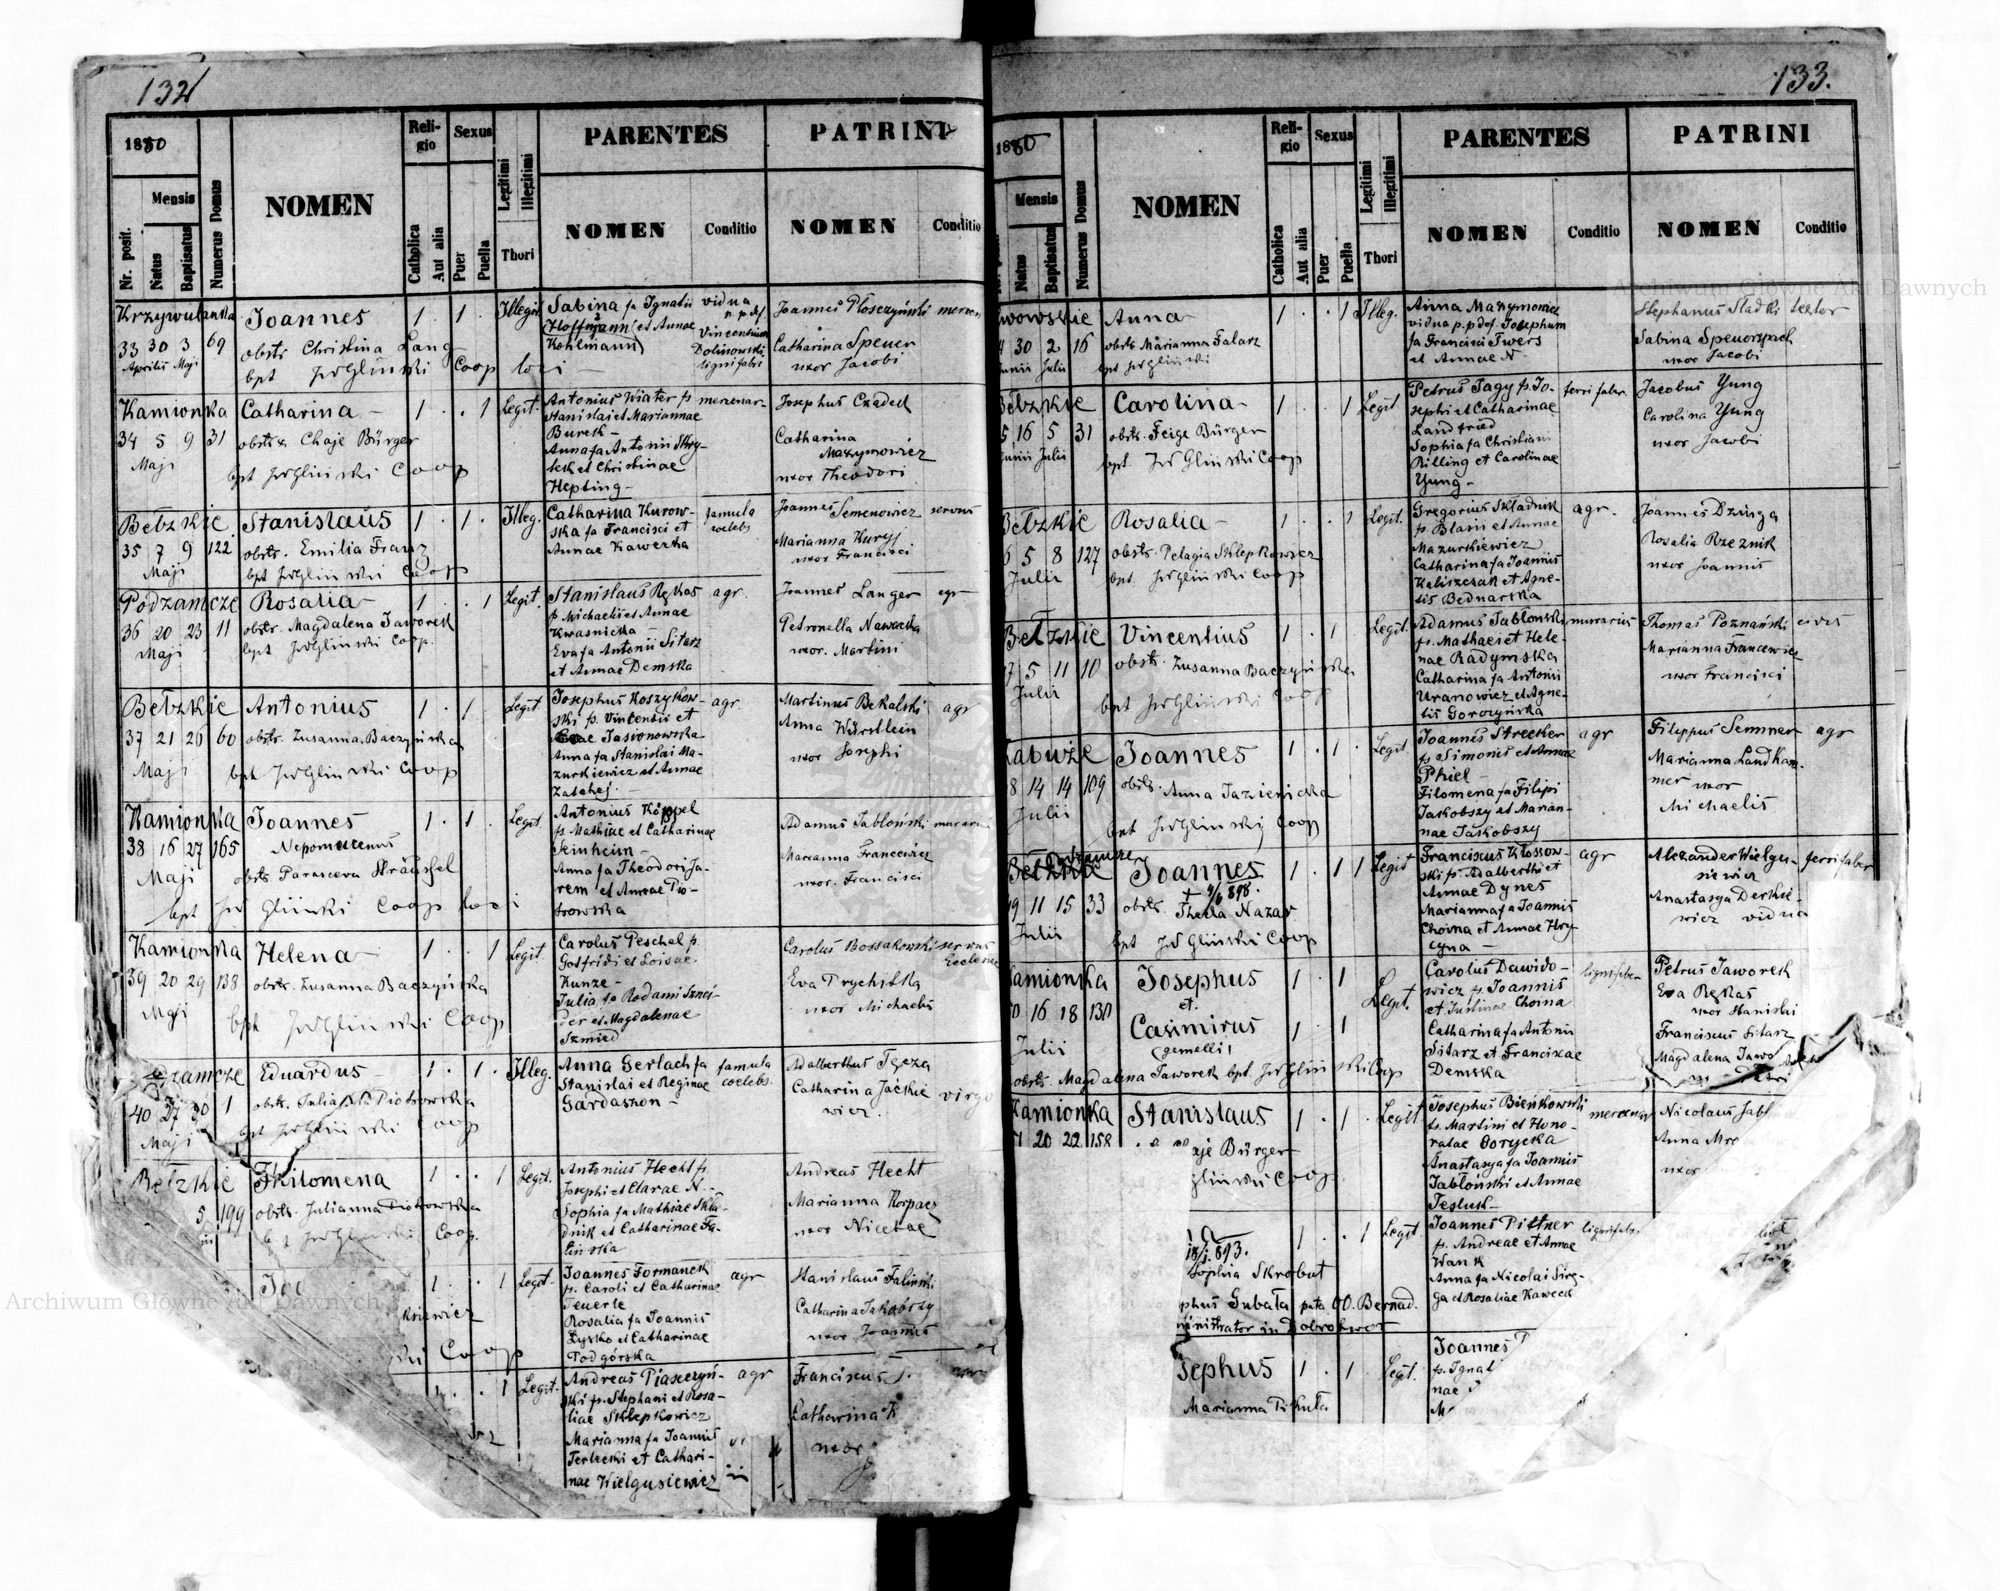 132
1880
Nr. posit.
Mensis
Natus
Baptisatus
Numerus Domus
NOMEN
Reli-
gio
Catholica
Aut alia
Sexus
Puer
Puella
Legitimi
Illegitimi
Thori
PARENTES
NOMEN
Conditio
PATRINI
NOMEN
Conditio
Krzywulanka
33 30 3 69
Aprilis Maji
Joannes
obstr Christina Lang
bpt JWGliński Coop loci
1 . 1 .
Illegit.
Sabina fa Ignatii
Hoffmann et Annae
Kohlmann
vidua
p. p. def.
Vincentium
Dolinowski
lignifabri
Joannes Płoszczyński mercen
Catharina Spener
uxor Jacobi
Kamionka
34 5 9 31
Maji
Catharina
obstr. Chaje Bürger
bpt JWGliński Coop
1 . . 1
Legit.
Antonius Wiater fs
Stanislai et Mariannae
Burek
Anna fa Antonii Skry-
lek et Christinae
Hepting
mercenar
Josephus Czadek
Catharina
Maxymowicz
uxor Theodori
Bełzkie
35 7 9 122
Maji
Stanislaus
obstr. Emilia Franz
bpt JWGliński Coop
1 . 1 .
Illeg.
Catharina Kurow-
ska fa Francisci et
Annae Kawerka
famula
coelebs
Joannes Semenowicz servus
Marianna Kuryj
uxor Francisci
Podzamcze
36 20 23 11
Maji
Rosalia
obstr. Magdalena Jaworek
bpt JWGliński Coop.
1 . . 1
Legit.
Stanislaus Rękas
fs Michaelis et Annae
Kwasnicka
Eva fa Antonii Sitarz
et Annae Demska
agr.
Joannes Langer agr
Petronella Nawacka
uxor. Martini
Bełzkie
37 21 26 60
Maji
Antonius
obstr. Zusanna Baczyńska
bpt JWGliński Coop
1 . 1 .
Legit
Josephus Koszykow-
ski fs. Vincentii et
Jasionowska
Anna fa Stanislai Ma-
zurkiewicz et Annae
Zatchej
agr.
Martinus Bekalski agr
Anna Würstlein
uxor Josephi
Kamionka
38 16 27 165
Maji
Joannes
Nepomucenus
obstr Parasceva Sträussel
bpt JW Gliński Coop loci
1 . 1 .
Legit.
Antonius Köppel
fs Mathiae et Catharinae
Seinheim
Anna fa Theodori Ja-
rem et Annae Pio-
trowska
Adamus Jabłoński murar
Marianna Francewicz
uxor. Francisci
Kamionka
39 20 29 138
Maji
Helena
obstr. Zusanna Baczyńska
bpt JWGliński Coop
1 . . 1
Legit.
Carolus Peschel fs.
Gotfridi et Loisae
Kunze
Julia fa Rodami Sznei-
der et Magdalenae
Szmied
Carolus Bossakowski servus
Ecclesiae
Eva Prychitka
uxor Michaelis
zamcze
40 27 30 1
Maji
Eduardus
obstr. Julia Piotrowska
bpt JWGliński Coop
1 . 1 .
Illeg.
Anna Gerlach fa
Stanislai et Reginae
Gardaszon
famula
coelebs
Adalberthus Tęcza
Catharina Jackie
wicz. virgo
Bełzkie
5 199
Philomena
obstr. Julianna Piotrowska
bpt JWGliński Coop.
1 . . 1
Legit.
Antonius Hecht fs.
Josephi et Clarae N.
Sophia fa Mathiae Skła-
dnik et Catharinae Fa-
lińska
Andreas Hecht
Marianna Korpacz
uxor Nicetae
kiewicz
Coop
1 . . 1
Legit.
Joannes Formanek
fs. Caroli et Catharinae
Feuerle
Rosalia fa Joannis
Łysko et Catharinae
Podgórska
agr
Stanislaus Faliński
Catharina Jakobszy
uxor Joannis
1 . . 1
Legit.
Andreas Piaseczyń-
ski fs. Stephani et Rosa-
liae Sklepkowicz
Marianna fa Joannis
Terlecki et Cathari-
nae Wielgusiewicz
agr
Franciscus
Catharina
uxor
133.
1880
Mensis
Natus
Baptisatus
Numerus Domus
NOMEN
Reli-
gio
Catholica
Aut alia
Sexus
Puer
Puella
Legitimi
Illegitimi
Thori
PARENTES
NOMEN
Conditio
PATRINI
NOMEN
Conditio
wowskie
30 2 16
Julii
Anna
obstr Marianna Falarz
bpt JWGliński
1 . . 1
Illeg.
Anna Maxymowicz
vidua p. p def. Josephum
fa Francisci Twers
et Annae N
Stephanus Sladki textor
Sabina
uxor Jacobi
Bełzkie
5 16 5 31
Junii Julii
Carolina
obstr. Feige Bürger
bpt. JW Gliński Coop
1 . . 1
Legit
Petrus Jagy fs. Jo-
sephi et Catharinae
Landfried
Sophia fa Christiani
Rilling et Carolinae
Yung
ferri faber.
Jacobus Yung
Carolina Yung
uxor Jacobi
Bełzkie
6 5 8 127
Julii
Rosalia
obstr. Pelagia Sklepkowicz
bpt. JWGliński Coop
1 . . 1
Legit.
Gregorius Składnik
fs Blasii et Annae
Mazurkiewicz
Catharina fa Joannis
Kaliszczak et Agne-
tis Bednarska
agr.
Joannes Dzinga
Rosalia Rzeznik
uxor Joannis
Bełzkie
7 5 11 10
Julii
Vincentius
obstr. Zusanna Baczyńska
bpt JWGliński Coop
1 . 1
Legit.
Adamus Jabłonski
fs. Mathaei et Hele-
nae Radymska
Catharina fa Antonii
Uranowicz et Agne-
tis Goroczyńska
murarius
Thomas Poznański civis
Marianna Francewicz
uxor Francisci
Łabuźe
8 14 14 109
Julii
Joannes
obstr. Anna Jazienicka
bpt JWGliński Coop
1 . 1 .
Legit.
Joannes Strecker
fs Simonis et Annae
Phiel
Filomena fa Filipi
Jakobszy et Marian-
nae Jakobszy
agr
Filippus Semmer agr
Marianna Landkam-
mer uxor
Michaelis
Bełzkie
19 11 15 33
Julii
Joannes
† 4/6 898.
obstr. Thecla Nazar
bpt JW Gliński Coop
1 . 1
Legit
Franciscus Kłossow-
ski fs. Adalberthi et
Annae Dynes
Marianna fa Joannis
Choina et Annae Hry-
cyna
agr
Alexander Wielgu- ferrifaber
siewicz
Anastasya Derkie-
wicz vidua
Kamionka
16 18 130
Julii
Josephus
et.
Casimirus
(gemelli)
obstr. Magdalena Jaworek bpt. JWGliński Coop
1 . 1
1 . 1
Legit.
Carolus Dawido-
wicz fs. Joannis
et Justinae Choina
Catharina fa Antonii
Sitarz et Franciscae
Demska
lignifaber
Petrus Jaworek
Eva Rękas
uxor Stanislai
Franciscus Sitarz
Magdalena Jaworek
Kamionka
20 22 158
Stanislaus
je Bürger
gliński Coop.
1 . 1 .
Legit
Josephus Bieńkowski
fs. Martini et Hono-
ratae Gorycka
Anastasya fa Joannis
Jabłoński et Annae
Tesluk
mercenar
Nicolaus Jabł
Anna
uxor
893.
Sophia Skrobut
phus Gubała pater OO. Bernad.
ministrator in Dobrotwor
1 . . 1
Legit.
Joannes Pittner
fs. Andreae et Annae
Wank
Anna fa Nicolai Sirg-
ga et Rosaliae Kaweck
lignifaber
sephus
Marianna Pikuła
1 . 1
Legit.
Joannes
fs. Ignati
nae
Archiwum Główne Akt Dawnych
Archiwum Główne Akt Dawnych